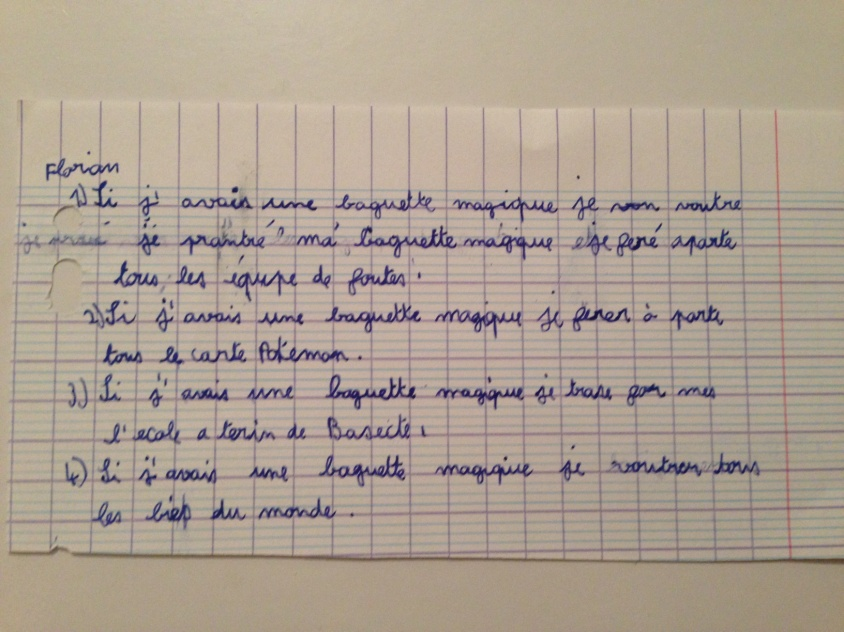 Florian
1) Si j'avais une baguette magique je von voutre
je prantré ma baguette magique et je feré aparte
tous les équipe de foutes.
2) Si j'avais une baguette magique je ferer à parte
tous le carte Pokémon.
3) Si j'avais une baguette magique je trase mes
l'ecole a terin de Basecte.
4) Si j'avais une baguette magique je voutrer tous
les du monde.